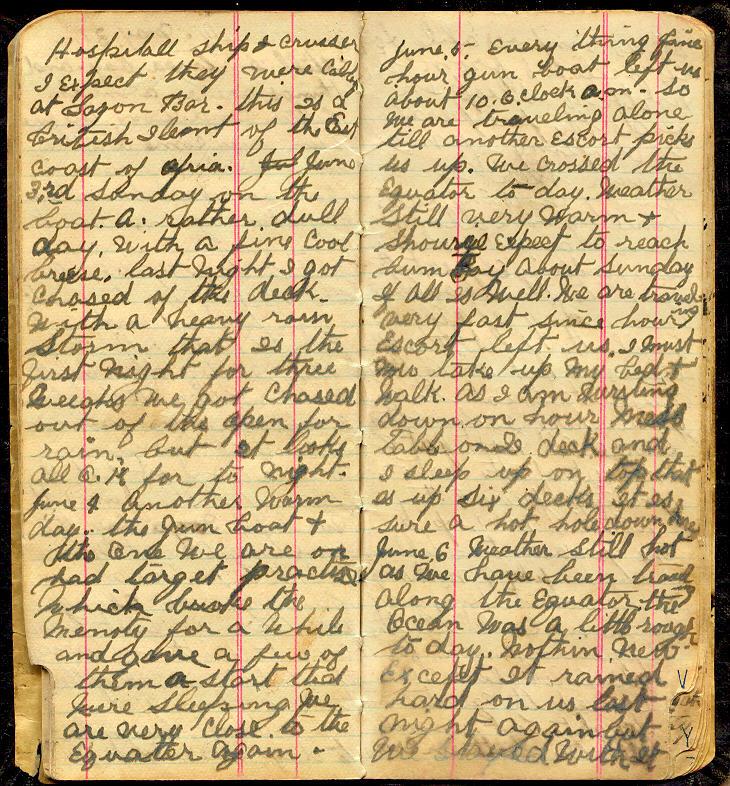 Hospitall ship & Crusser
I Expect they were
at Bar. this is a
British Ileant of the East
Coast of afria. June
3,rd Sunday on the
boat. A. rather dull
day. With a fine Cool
breese. last Night I got
Chased of the deck.
With a heavy rain
Storm that is the
first Night for three
Weeghs We got Chased
out of the open for
rain, but it looks
all O.K for to Night.
June 4 another Warm
day. the Gun boat &
the One We are on
had target practis
Which the
Menoty for a While
and gave a few of
them a start that
Were Sleeping We
are very Close to the
Equater again.
June. 5. Every thing fine
hour gun boat left us
about 10. O. Clock a.m. So
We are traveling alone
till another Escort picks
us up. We Crossed the
Equator to day. Weather
Still very Warm &
Expect to reach
bumbay About Sunday
if all is Well. We are traveling
very fast since hour
Escort left us. I must
take up My bed &
Walk. as I am
down on hour Mess
table on deck and
I sleep up on top that
is up six decks. it is
sure a hot hole down here
June, 6 Weather Still hot
as We have been
along the Equator. the
Ocean Was a little rough
to day. Nothin New
Except it rained
hard on us last
night again but
We stayed With it